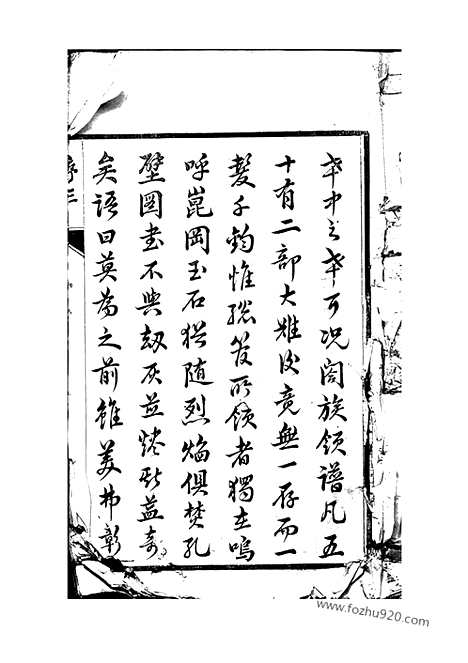 幸中之幸可況闔族領譜凡五
十有二部大難後竟無一存而一
髮千鈞惟聡發所領者獨在嗚
呼崑岡玉石猶隨烈焰俱焚孔
壁圖書不與刼灰並燼斯益奇
矣語曰莫為之前雖美弗彰
序三
www.fozhu920.com